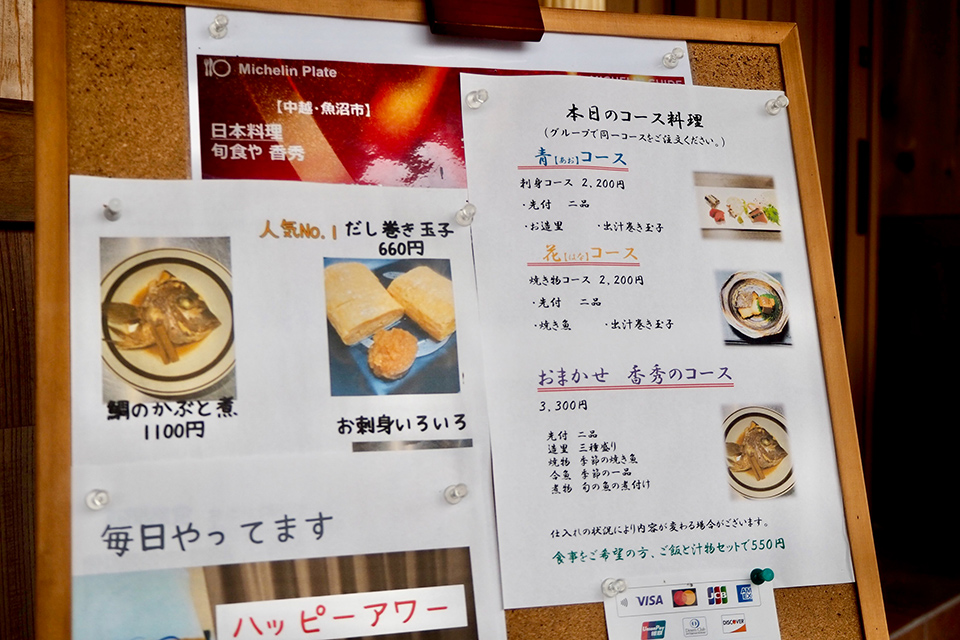 Michelin Plate
【中越・魚沼市】
日本料理
旬食や 香秀
人気No.1 だし巻き玉子
660円
鯛のかぶと煮
1100円
お刺身いろいろ
毎日やってます
ハッピーアワー
本日のコース料理
(グループで同一コースをご注文ください。)
青【あお】コース
刺身コース 2,200円
・先付 二品
・お造里 ・出汁巻き玉子
花【はな】コース
焼き物コース 2,200円
・先付 二品
・焼き魚 ・出汁巻き玉子
おまかせ 香秀のコース
3,300円
先付 二品
造里 三種盛り
焼物 季節の焼き魚
合魚 季節の一品
煮物 旬の魚の煮付け
仕入れの状況により内容が変わる場合がございます。
食事をご希望の方、ご飯と汁物セットで550円
VISA JCB AM EX
UnionPay DISCOVER